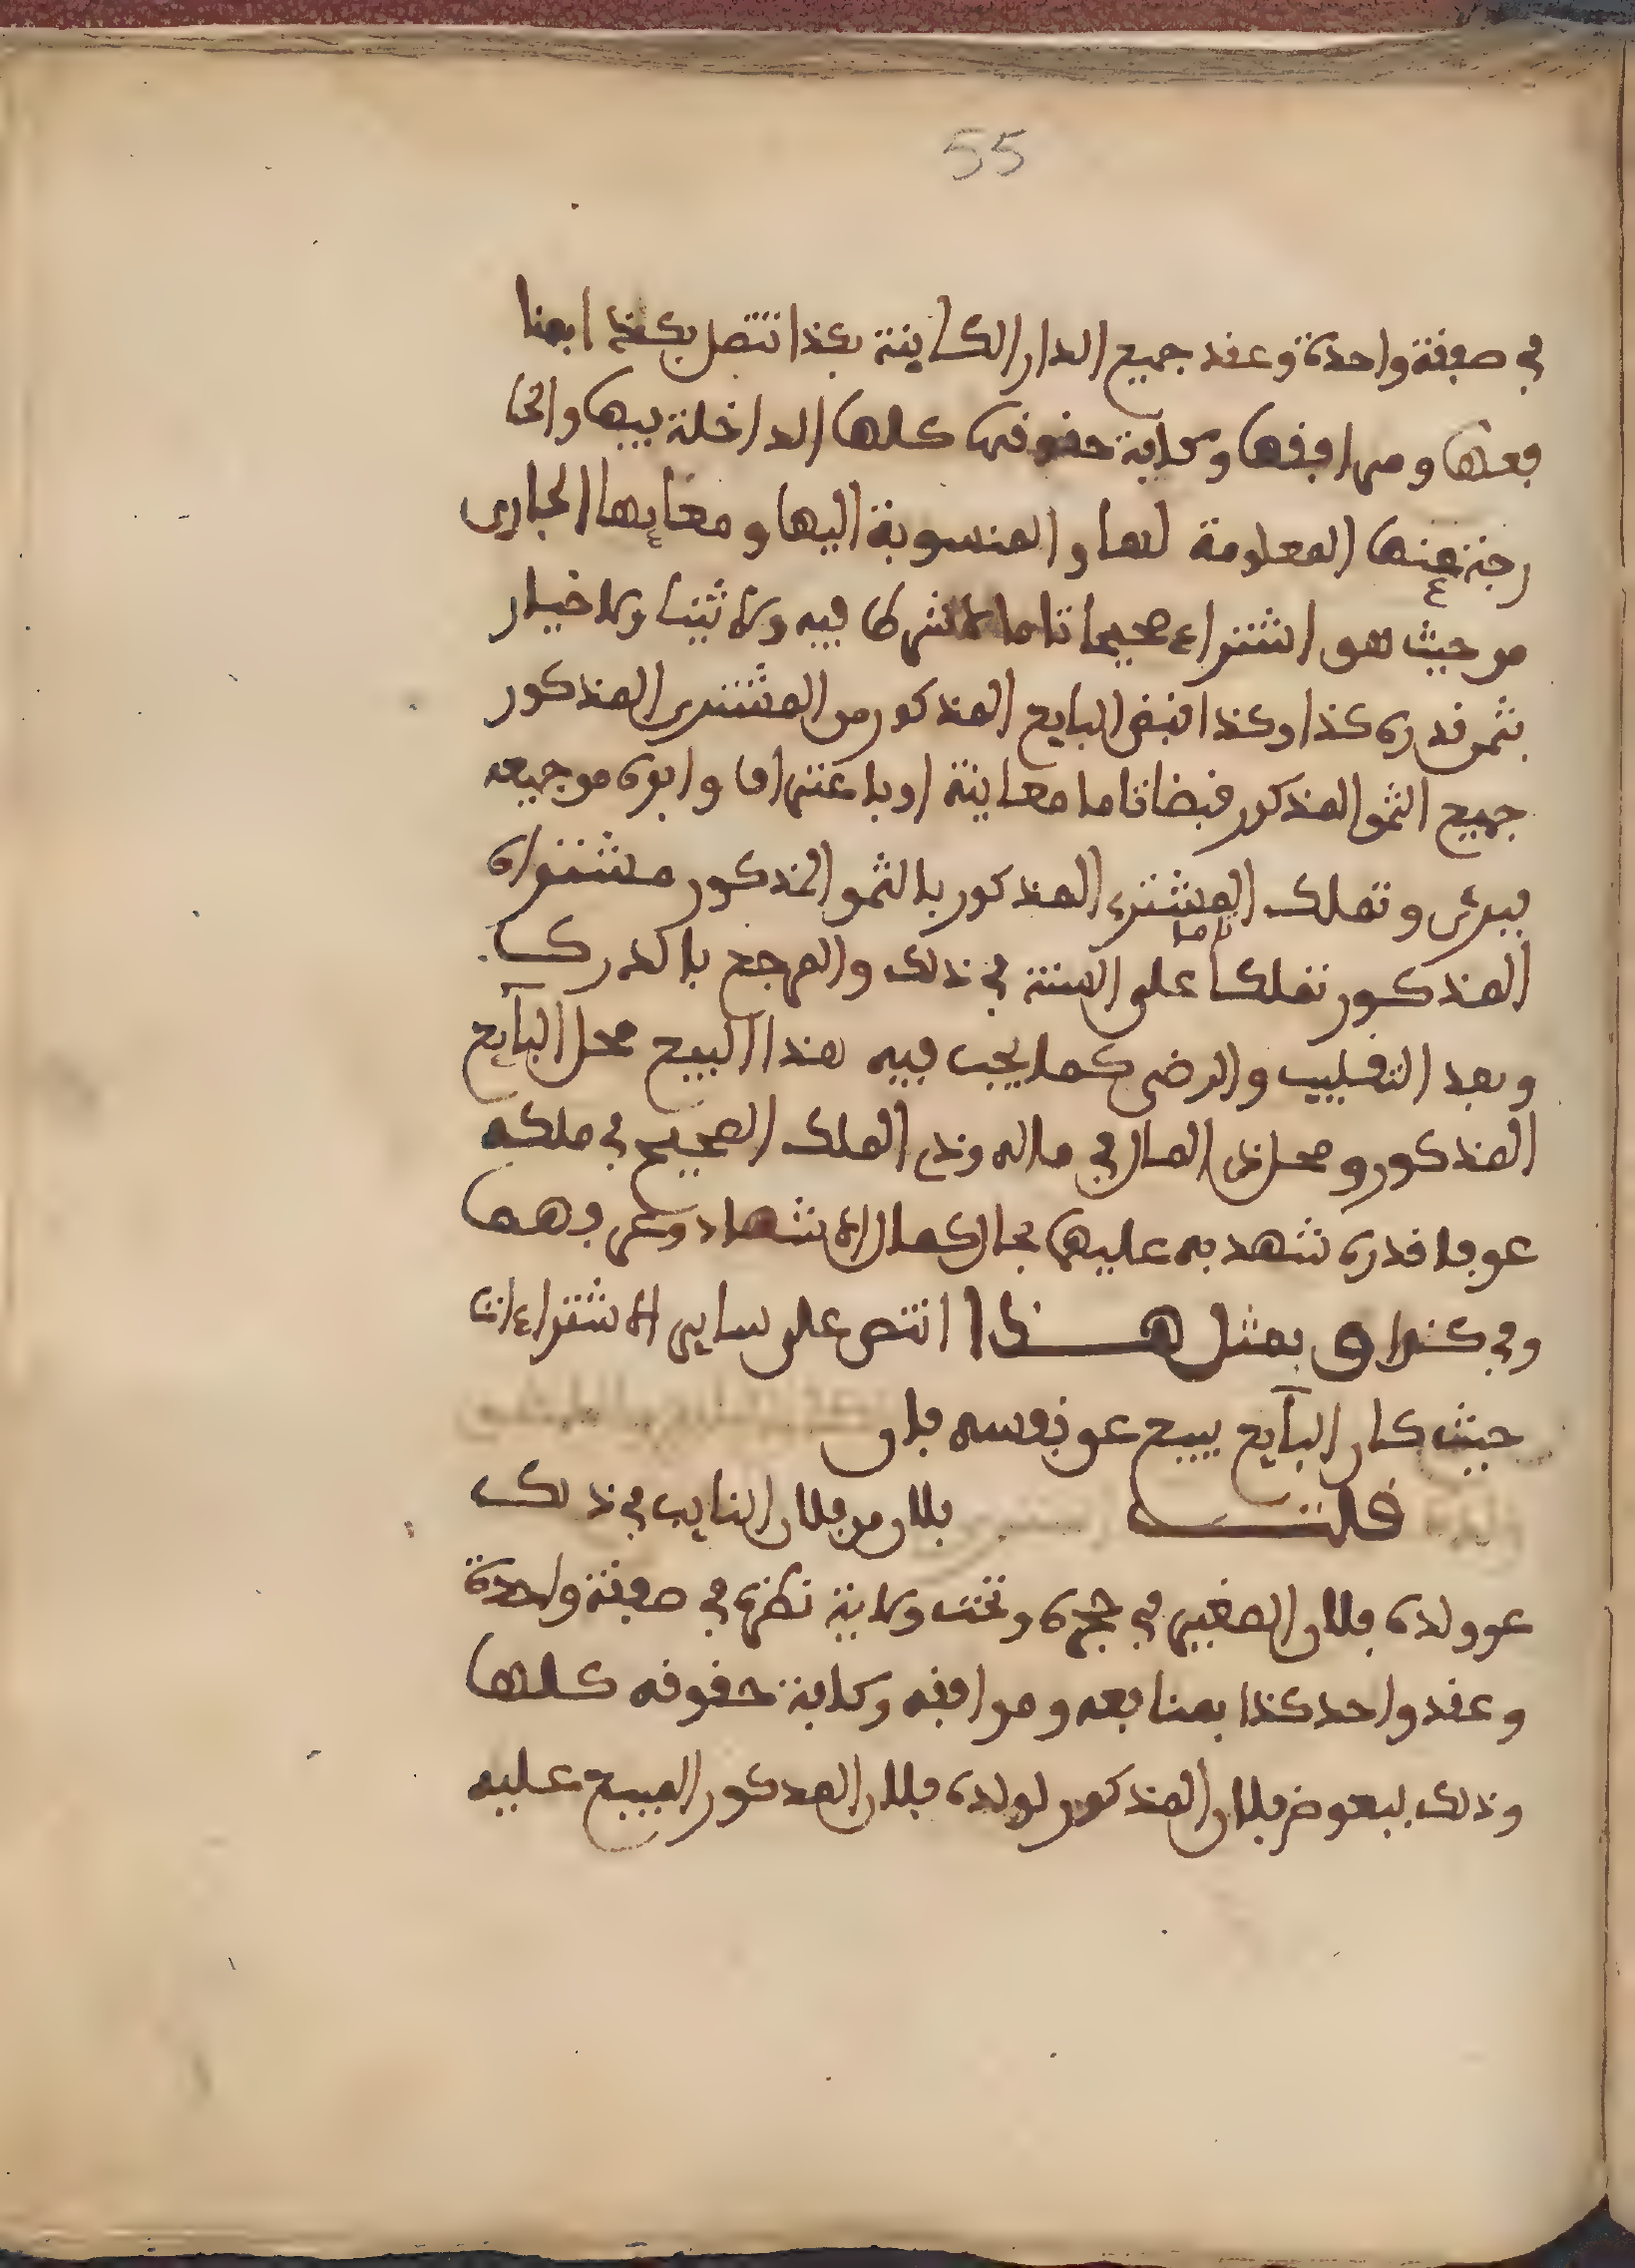 55
في صفقة واحدة وعقد جميع الدار الكاينة بكذا تتصل بكذا بمنا
فعها ومرافقها وكافة حقوقها كلها الداخلة فيها والخا
رجة عنها المعلومة لها والمنسوبة اليها ومغابها الجاري
من حيث هو اشتراء صحيحا تاما لا شرط فيه ولا ثنيا ولا خيار
بثمن قدره كذا وكذا قبض البايع المذكور من المشتري المذكور
جميع الثمن المذكور قبضا تاما معاينة او باعترافا وابره من جميعه
فبرئ وتملك المشتري المذكور بالثمن المذكور مشتراه
المذكور تملكا تاما على السنة في ذلك والمرجع بالدرك
وبعد التقليب والرضى كما يجب فيه هذا البيع محل البآيع
المذكور ومحل ذي المال في ماله وذي الملك الصحيح في ملكه
عرفا قدره شهد به عليهما بحال كمال الاشهاد وعرفهما
وفي كذا وبمثل هذا انتص على ساير الاشتراءات
حيث كان البآيع يبيع عن نفسه فان
قلت فلان من فلان النايب في ذلك
عن ولده فلان الصغير في حجره وتحت ولاية نظره في صفقة واحدة
وعقد واحد كذا بمنافعه ومرافقه وكافة حقوقه كلها
وذلك ليعوض فلان المذكور لولده فلان المذكور المبيع عليه